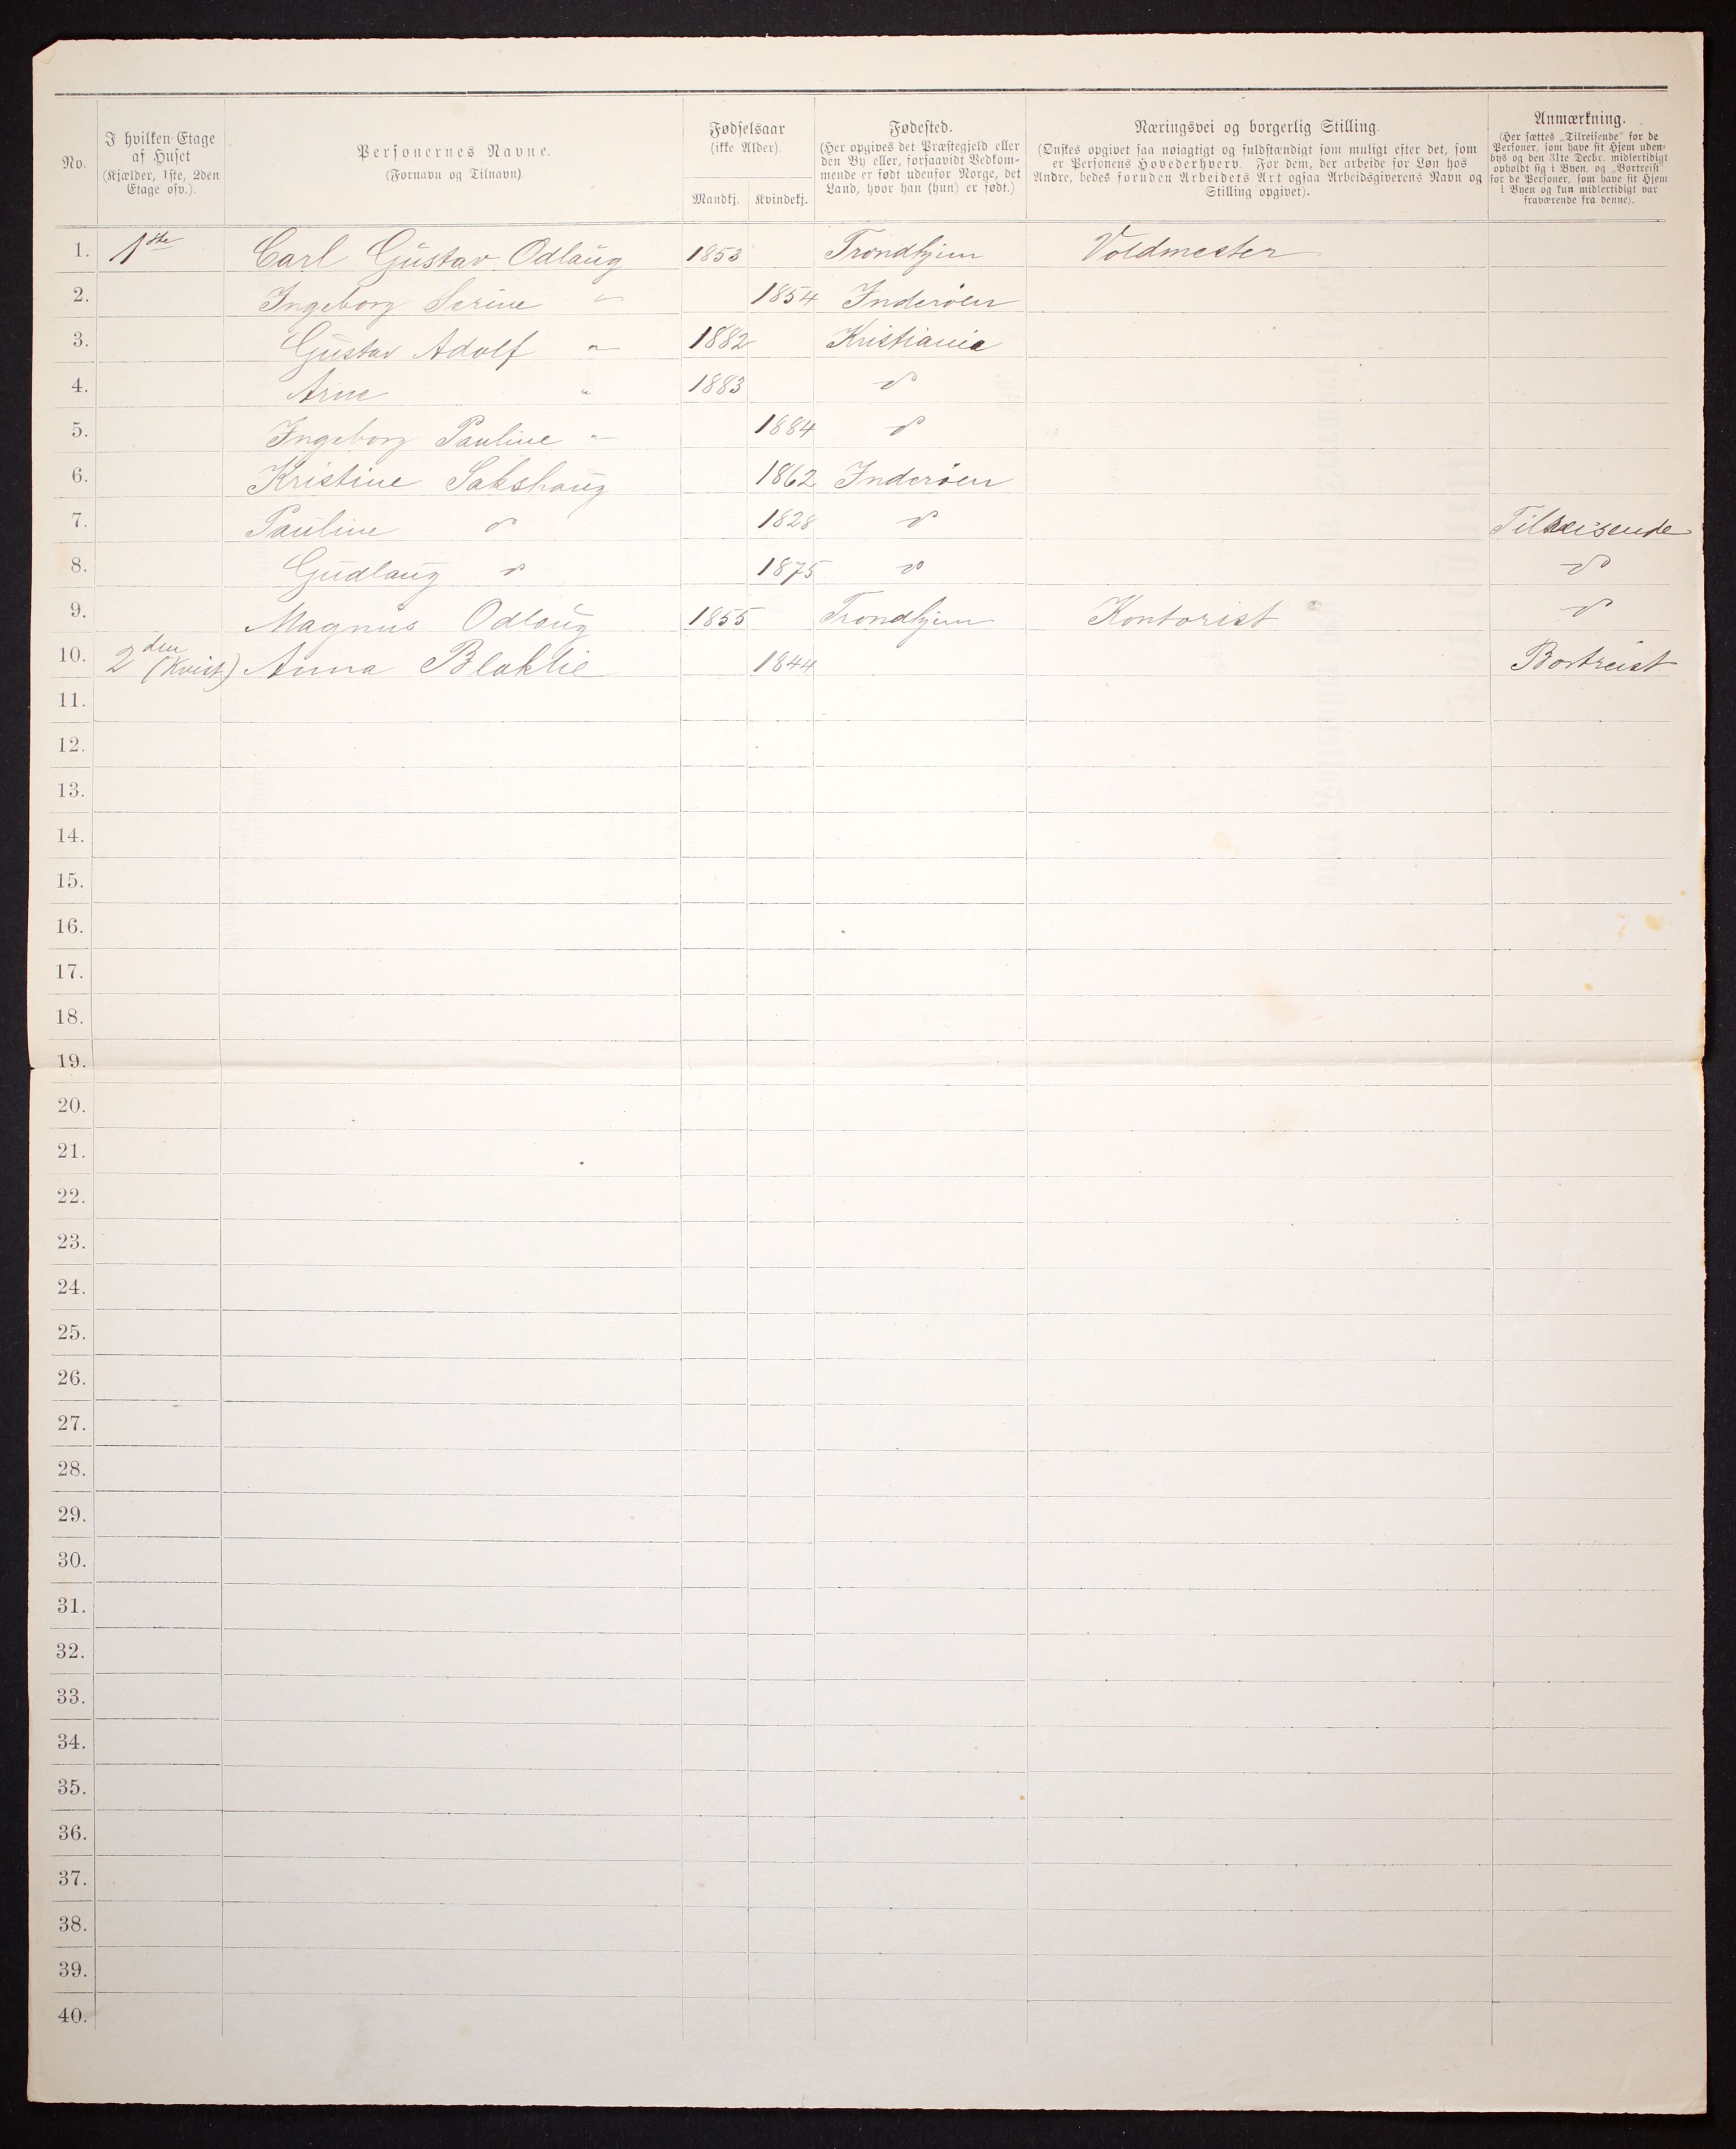 No.
I hvilken Etage
af Huset
(Kjælder, 1ste, 2den
Etage osv.).
Personernes Navne.
(Fornavn og Tilnavn)
Fødselsaar
(ikke Alder).
Mandkj. Kvindekj.
Fødested.
(Her opgives det Præstegjeld eller
den By eller, forsaavidt Vedkom-
mende er født udenfor Norge, det
Land, hvor han (hun) er født.)
Næringsvei og borgerlig Stilling.
(Ønskes opgivet saa nøiagtigt og fuldstændigt som muligt efter det, som
er Personens Hovederhverv. For dem, der arbeide for Løn hos
Andre, bedes foruden Arbeidets Art ogsaa Arbeidsgiverens Navn og
Stilling opgivet).
Anmærkning.
(Her sættes „Tilreisende" for de
Personer, som have sit Hjem uden-
bys og den 31te Decbr. midlertidigt
opholdt sig i Byen, og „Bortreist"
for de Personer, som have sit Hjem
i Byen og kun midlertidigt var
fraværende fra denne).
1. 1ste Carl Gustav Odlaug 1853 Trondhjem Voldmester
2. Ingeborg Serine " 1854 Inderöen
3. Gustav Adolf " 1882 Kristiania
4. Arne " 1883 do
5. Ingeborg Pauline " 1884 do
6. Kristine Sakshaug 1862 Inderöen
7. Pauline do 1828 do Tilreisende
8. Gudlaug do 1875 do do
9. Magnus Odlaug 1855 Trondhjem Kontorist do
10. 2den (Kvist) Anna Blaklie 1844 Bortreist
11.
12.
13.
14.
15.
16.
17.
18.
19.
20.
21.
22.
23.
24.
25.
26.
27.
28.
29.
30.
31.
32.
33.
34.
35.
36.
37.
38.
39.
40.